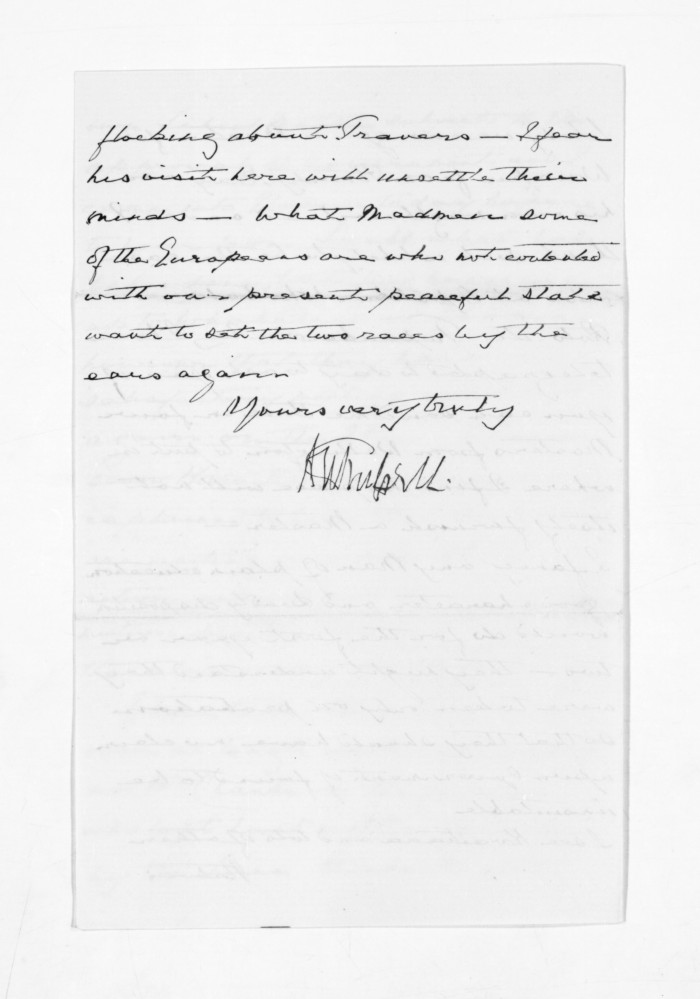 flocking about Travers — I fear
his visit here will unsettle their
minds — What Madmen some
of the Europeans are who not contented
with our present peaceful state
want to set the two races by the
ears again
Yours very truly